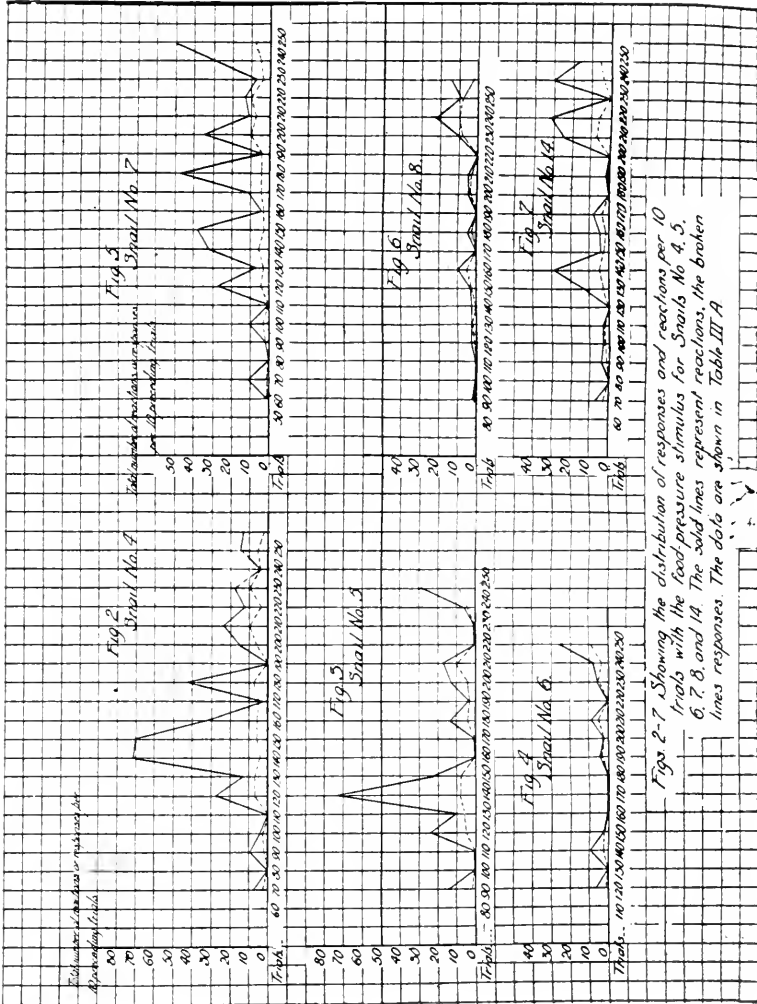 Total number of reactions or responses per
10 preceding trials
Fig 2
Snail No. 4
80
70
60
50
40
30
20
10
0
Trials
60 70 80 90 100 110 120 130 140 150 160 170 180 190 200 210 220 230 240 250
Fig. 3
Snail No. 5
80
70
60
50
40
30
20
10
0
Trials
80 90 100 110 120 130 140 150 160 170 180 190 200 210 220 230 240 250
Fig 4
Snail No. 6
20
10
0
Trials
110 120 130 140 150 160 170 180 190 200 210 220 230 240 250
Fig 5
Snail No. 7
Total number of reactions or responses
per 10 preceding trials
50
40
30
20
10
0
Trials
50 60 70 80 90 100 110 120 130 140 150 160 170 180 190 200 210 220 230 240 250
Fig 6
Snail No. 8
40
30
20
10
0
Trials
80 90 100 110 120 130 140 150 160 170 180 190 200 210 220 230 240 250
Fig 7
Snail No. 14
40
30
20
10
0
Trials
60 70 80 90 100 110 120 130 140 150 160 170 180 190 200 210 220 230 240 250
Figs. 2-7 Showing the distribution of responses and reactions per 10
trials with the food-pressure stimulus for Snails No 4, 5,
6, 7, 8, and 14. The solid lines represent reactions, the broken
lines responses. The data are shown in Table III A